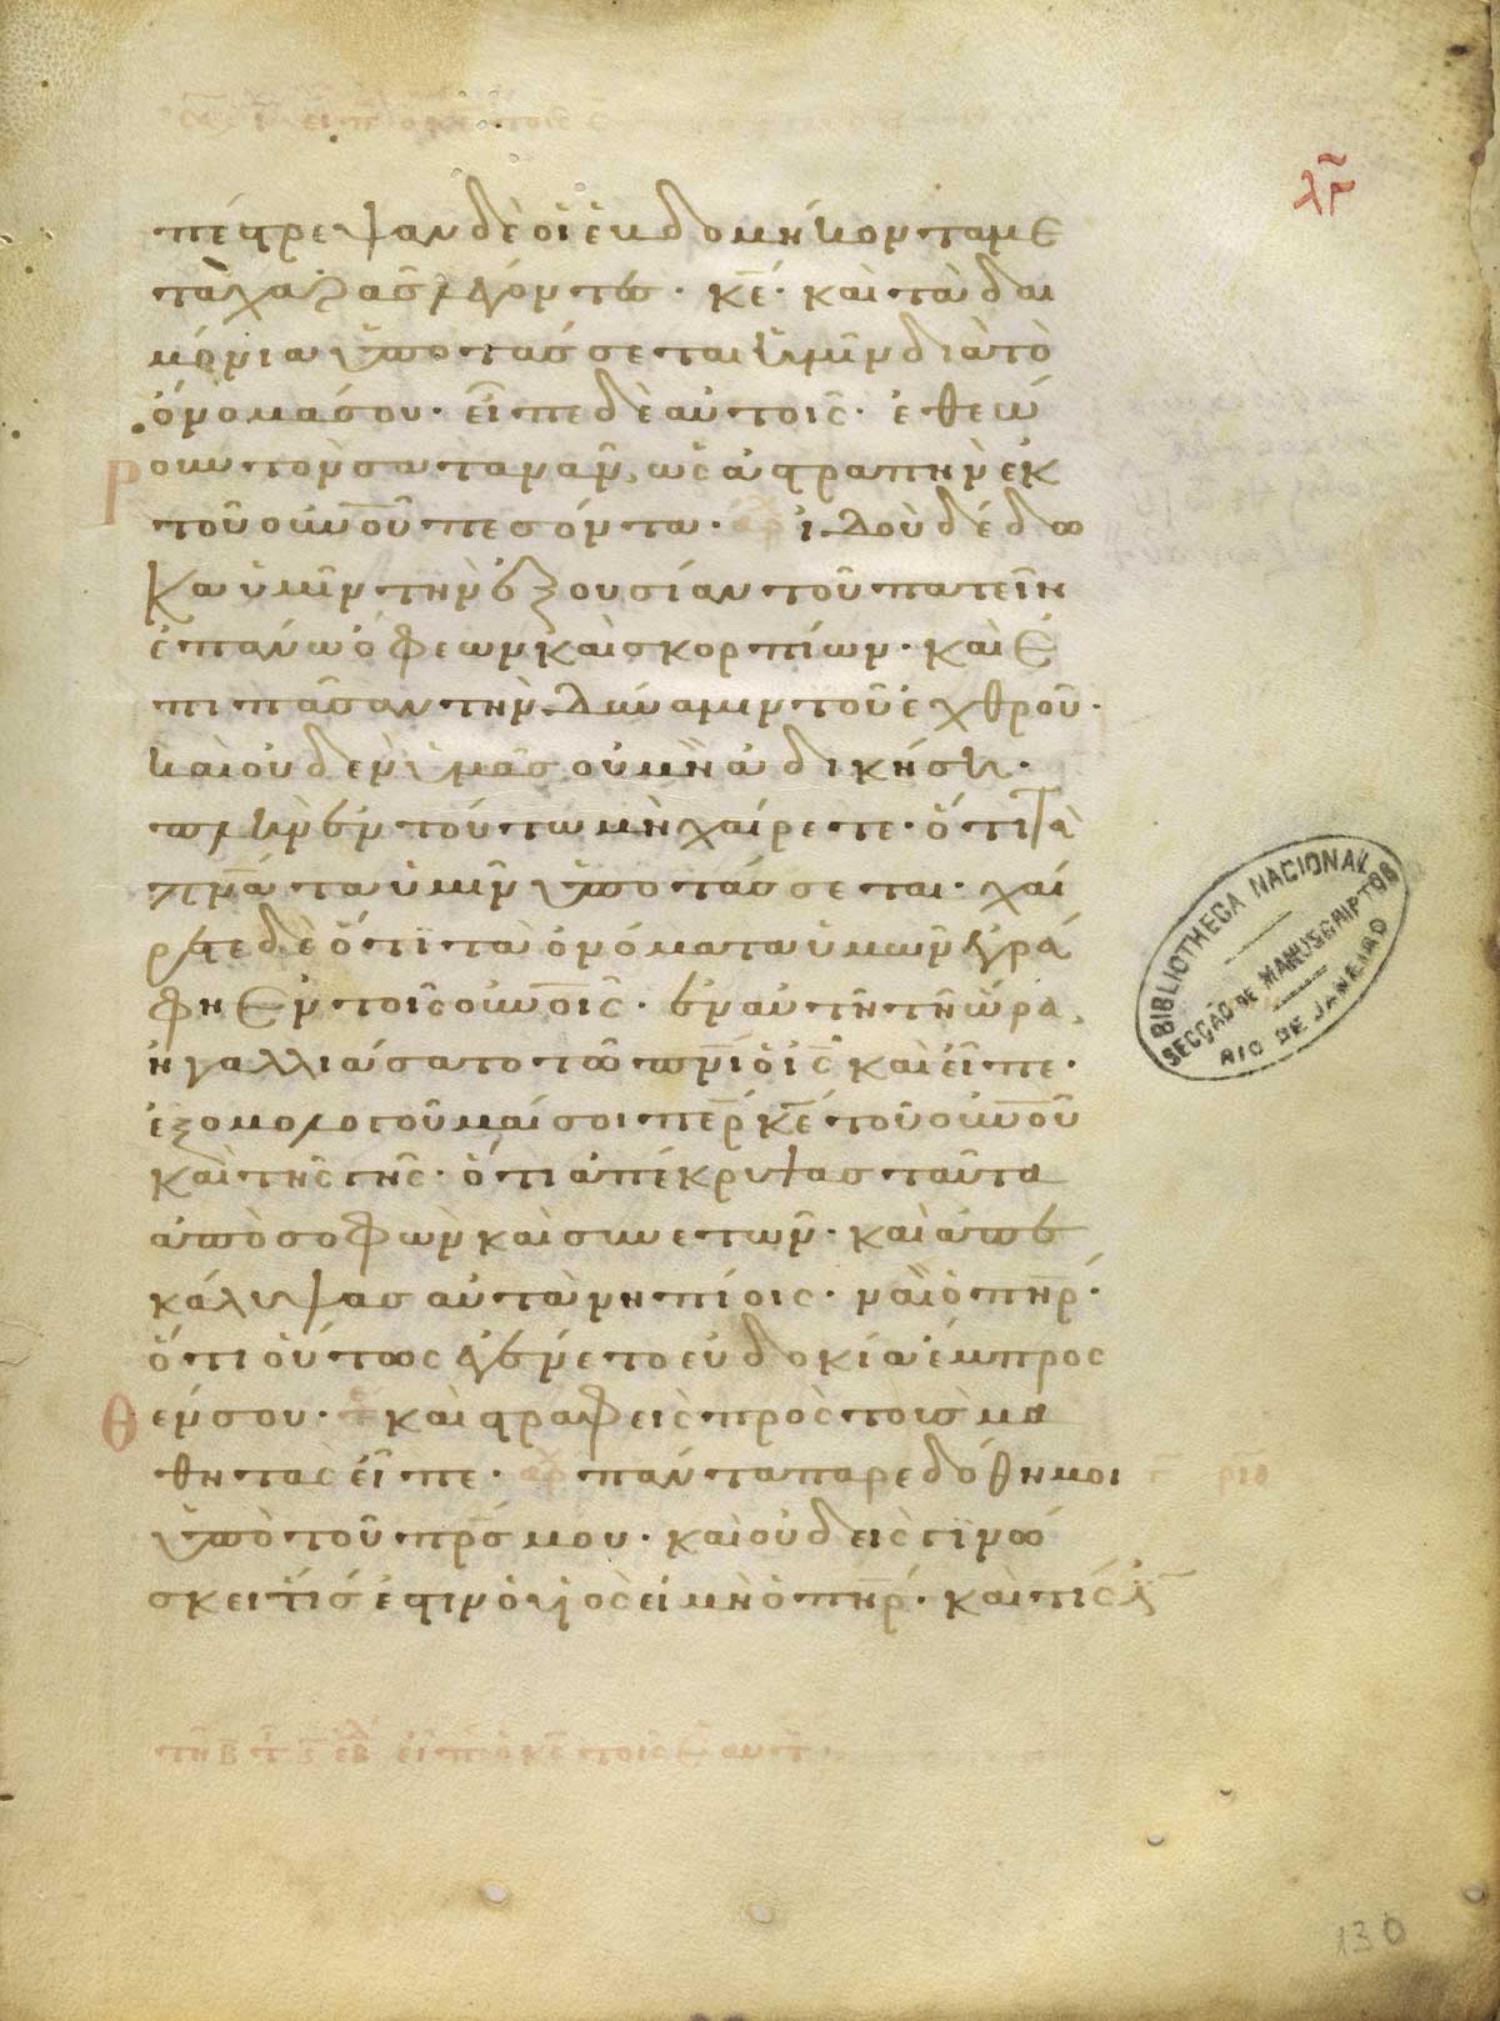 λγ
πέστρεψαν δὲ οἱ ἑβδομήκοντα με
τὰ χαρᾶς λέγοντες· κ̅ε̅· καὶ τὰ δαι
μόνια ὑποτάσσεται ἡμῖν διὰ τὸ
ὄνομά σου· εἶπε δὲ αὐτοῖς· ἐθεώ
ρουν τὸν σατανᾶν, ὡς ἀστραπὴν ἐκ
τοῦ οὐ̅ν̅οῦ πεσόντα· ἰδοὺ δέδω
κα ὑμῖν τὴν ἐξουσίαν τοῦ πατεῖν
ἐπάνω ὄφεων καὶ σκορπίων· καὶ ἐ
πι πᾶσαν τὴν δύναμιν τοῦ ἐχθροῦ·
καὶ οὐδὲν ὑμᾶς οὐ μὴ ἀδικήσει·
πλὴν ἐν τούτω μὴ χαίρετε· ὅτι τὰ
π̅ν̅ατα ὑμῖν ὑποτάσσεται· χαί
ρετε δὲ ὅτι τὰ ὀνόματα ὑμῶν ἐγρά
φη ἐν τοῖς οὐ̅ν̅οῖς· ἐν αὐτῆ τῆ ὥρα,
ἠγαλλιάσατο τῶ π̅ν̅ι ὁ ι̅ς̅ καὶ εἶπε·
ἐξομολογοῦμαί σοι π̅ε̅ρ̅ κ̅ε̅ τοῦ οὐ̅ν̅οῦ
καὶ τῆς γῆς· ὅτι ἀπέκρυψας ταῦτα
ἀπὸ σοφῶν καὶ συνετῶν· καὶ ἀπε
κάλυψας αὐτὰ νηπίοις· ναὶ ὁ π̅η̅ρ̅·
ὅτι οὕτως ἐγένετο εὐδοκία ἔμπροσ
θέν σου· καὶ στραφεὶς πρὸς τοὺς μα
θητὰς εἶπε· πάντα παρεδόθη μοι
ὑπὸ τοῦ π̅ρ̅ς̅ μου· καὶ οὐδεὶς γινώ
σκει τίς ἐστιν ὁ υἱὸς εἰ μὴ ὁ π̅η̅ρ̅· καὶ τίς ἐ̅
BIBLIOTHECA NACIONAL
SECÇÃO DE MANUSCRIPTOS
RIO DE JANEIRO
130